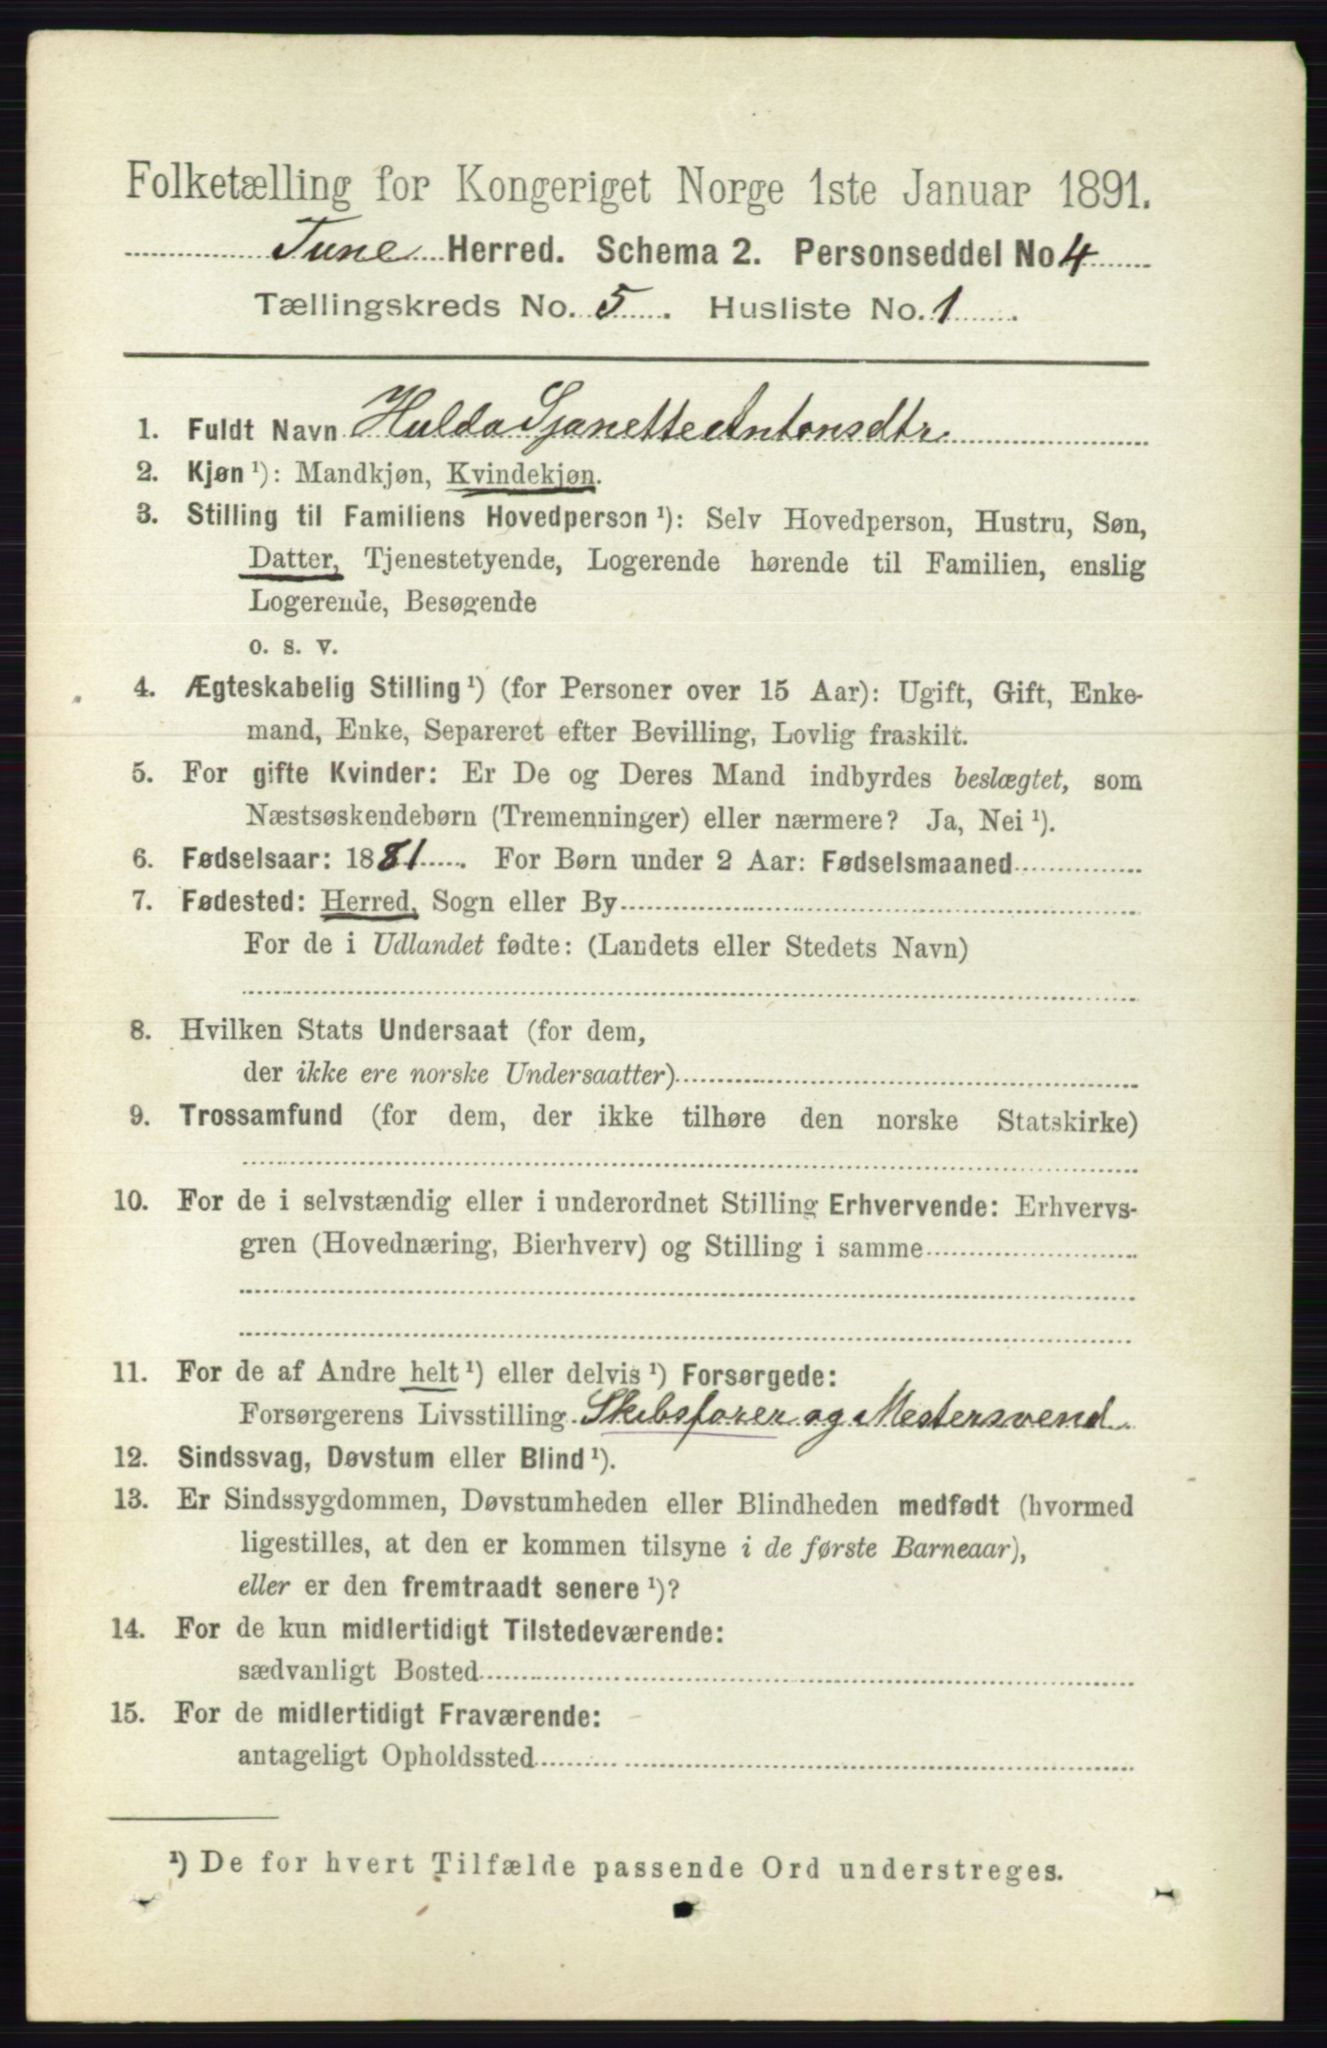 Folketælling for Kongeriget Norge 1ste Januar 1891.
Tune Herred. Schema 2. Personseddel No 4
Tællingskreds No. 5. Husliste No. 1.
1. Fuldt Navn Hulda Sjanette Antonsdtr.
2. Kjøn ¹): Mandkjøn, Kvindekjøn.
3. Stilling til Familiens Hovedperson ¹): Selv Hovedperson, Hustru, Søn,
Datter, Tjenestetyende, Logerende hørende til Familien, enslig
Logerende, Besøgende
o. s. v.
4. Ægteskabelig Stilling ¹) (for Personer over 15 Aar): Ugift, Gift, Enke-
mand, Enke, Separeret efter Bevilling, Lovlig fraskilt.
5. For gifte Kvinder: Er De og Deres Mand indbyrdes beslægtet, som
Næstsøskendebørn (Tremenninger) eller nærmere? Ja, Nei ¹).
6. Fødselsaar: 1881. For Børn under 2 Aar: Fødselsmaaned
7. Fødested: Herred, Sogn eller By
For de i Udlandet fødte: (Landets eller Stedets Navn)
8. Hvilken Stats Undersaat (for dem,
der ikke ere norske Undersaatter)
9. Trossamfund (for dem, der ikke tilhøre den norske Statskirke)
10. For de i selvstændig eller i underordnet Stilling Erhvervende: Erhvervs-
gren (Hovednæring, Bierhverv) og Stilling i samme
11. For de af Andre helt ¹) eller delvis ¹) Forsørgede:
Forsørgerens Livsstilling Skibsfører og Mestersvend.
12. Sindssvag, Døvstum eller Blind ¹).
13. Er Sindssygdommen, Døvstumheden eller Blindheden medfødt (hvormed
ligestilles, at den er kommen tilsyne i de første Barneaar),
eller er den fremtraadt senere ¹)?
14. For de kun midlertidigt Tilstedeværende:
sædvanligt Bosted
15. For de midlertidigt Fraværende:
antageligt Opholdssted
¹) De for hvert Tilfælde passende Ord understreges.